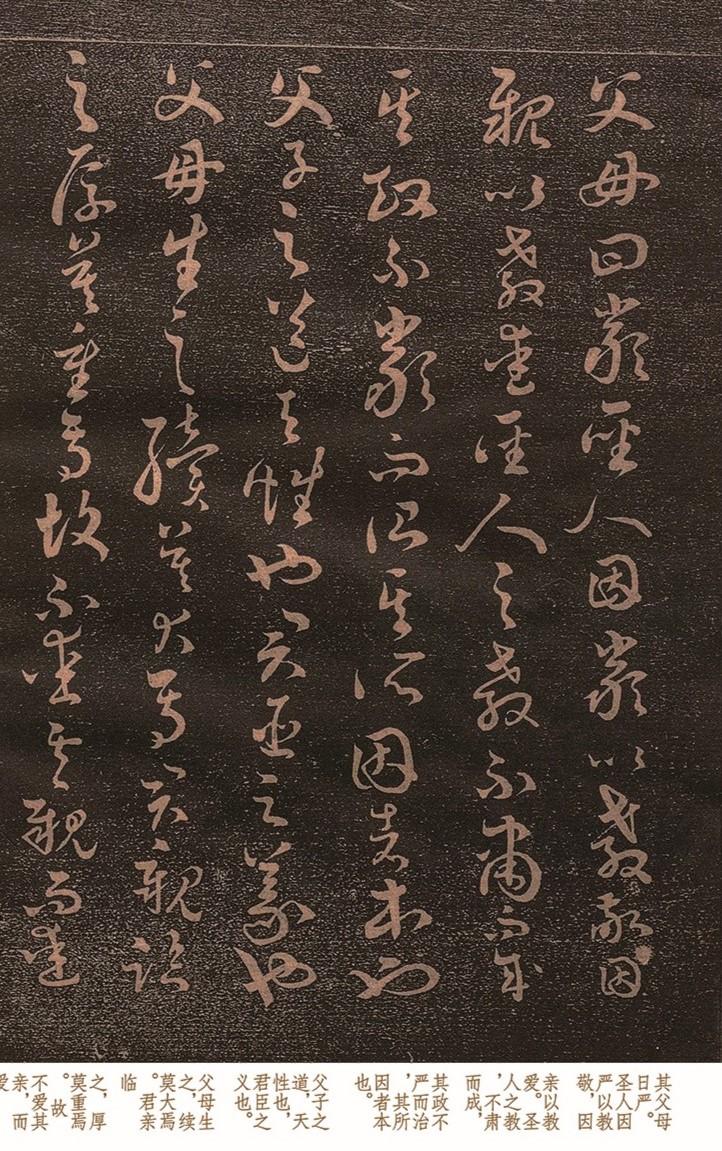 父母日嚴聖人因嚴以教敬因
親以教愛聖人之教不肅而成
其政不嚴而治其所因者本也
父子之道天性也君臣之義也
父母生之續莫大焉君親臨
之厚莫重焉故不愛其親而愛
其父母
日严。
圣人因
严以教
敬，因
亲以教
爱。圣
人之教
，不肃
而成，
其政不
严而治
，其所
因者本
也。
父子之
道，天
性也，
君臣之
义也。
父母生
之，续
莫大焉
。君亲
临
之，厚
莫重焉
。故
不爱其
亲，而
爱